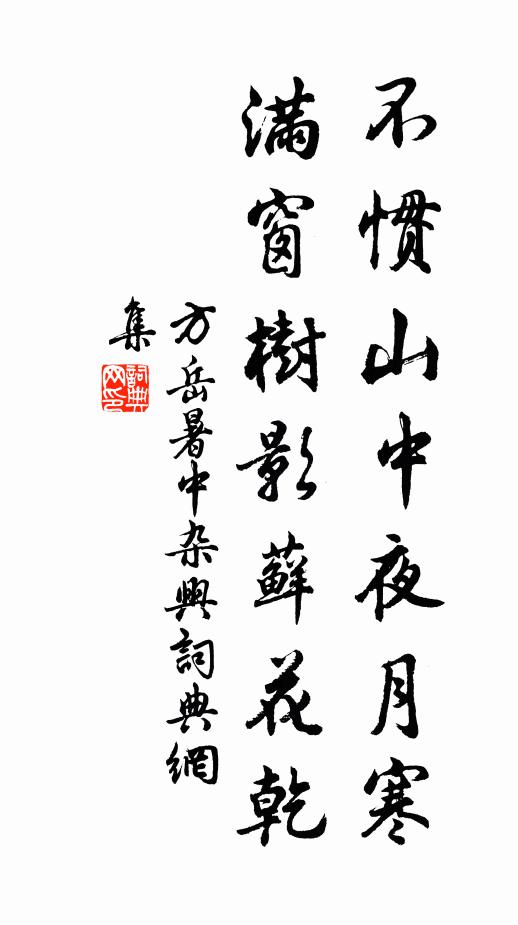 不慣山中夜月寒
滿窗樹影蘚花乾
方岳暑中杂興詞典網
集
詞典
网印